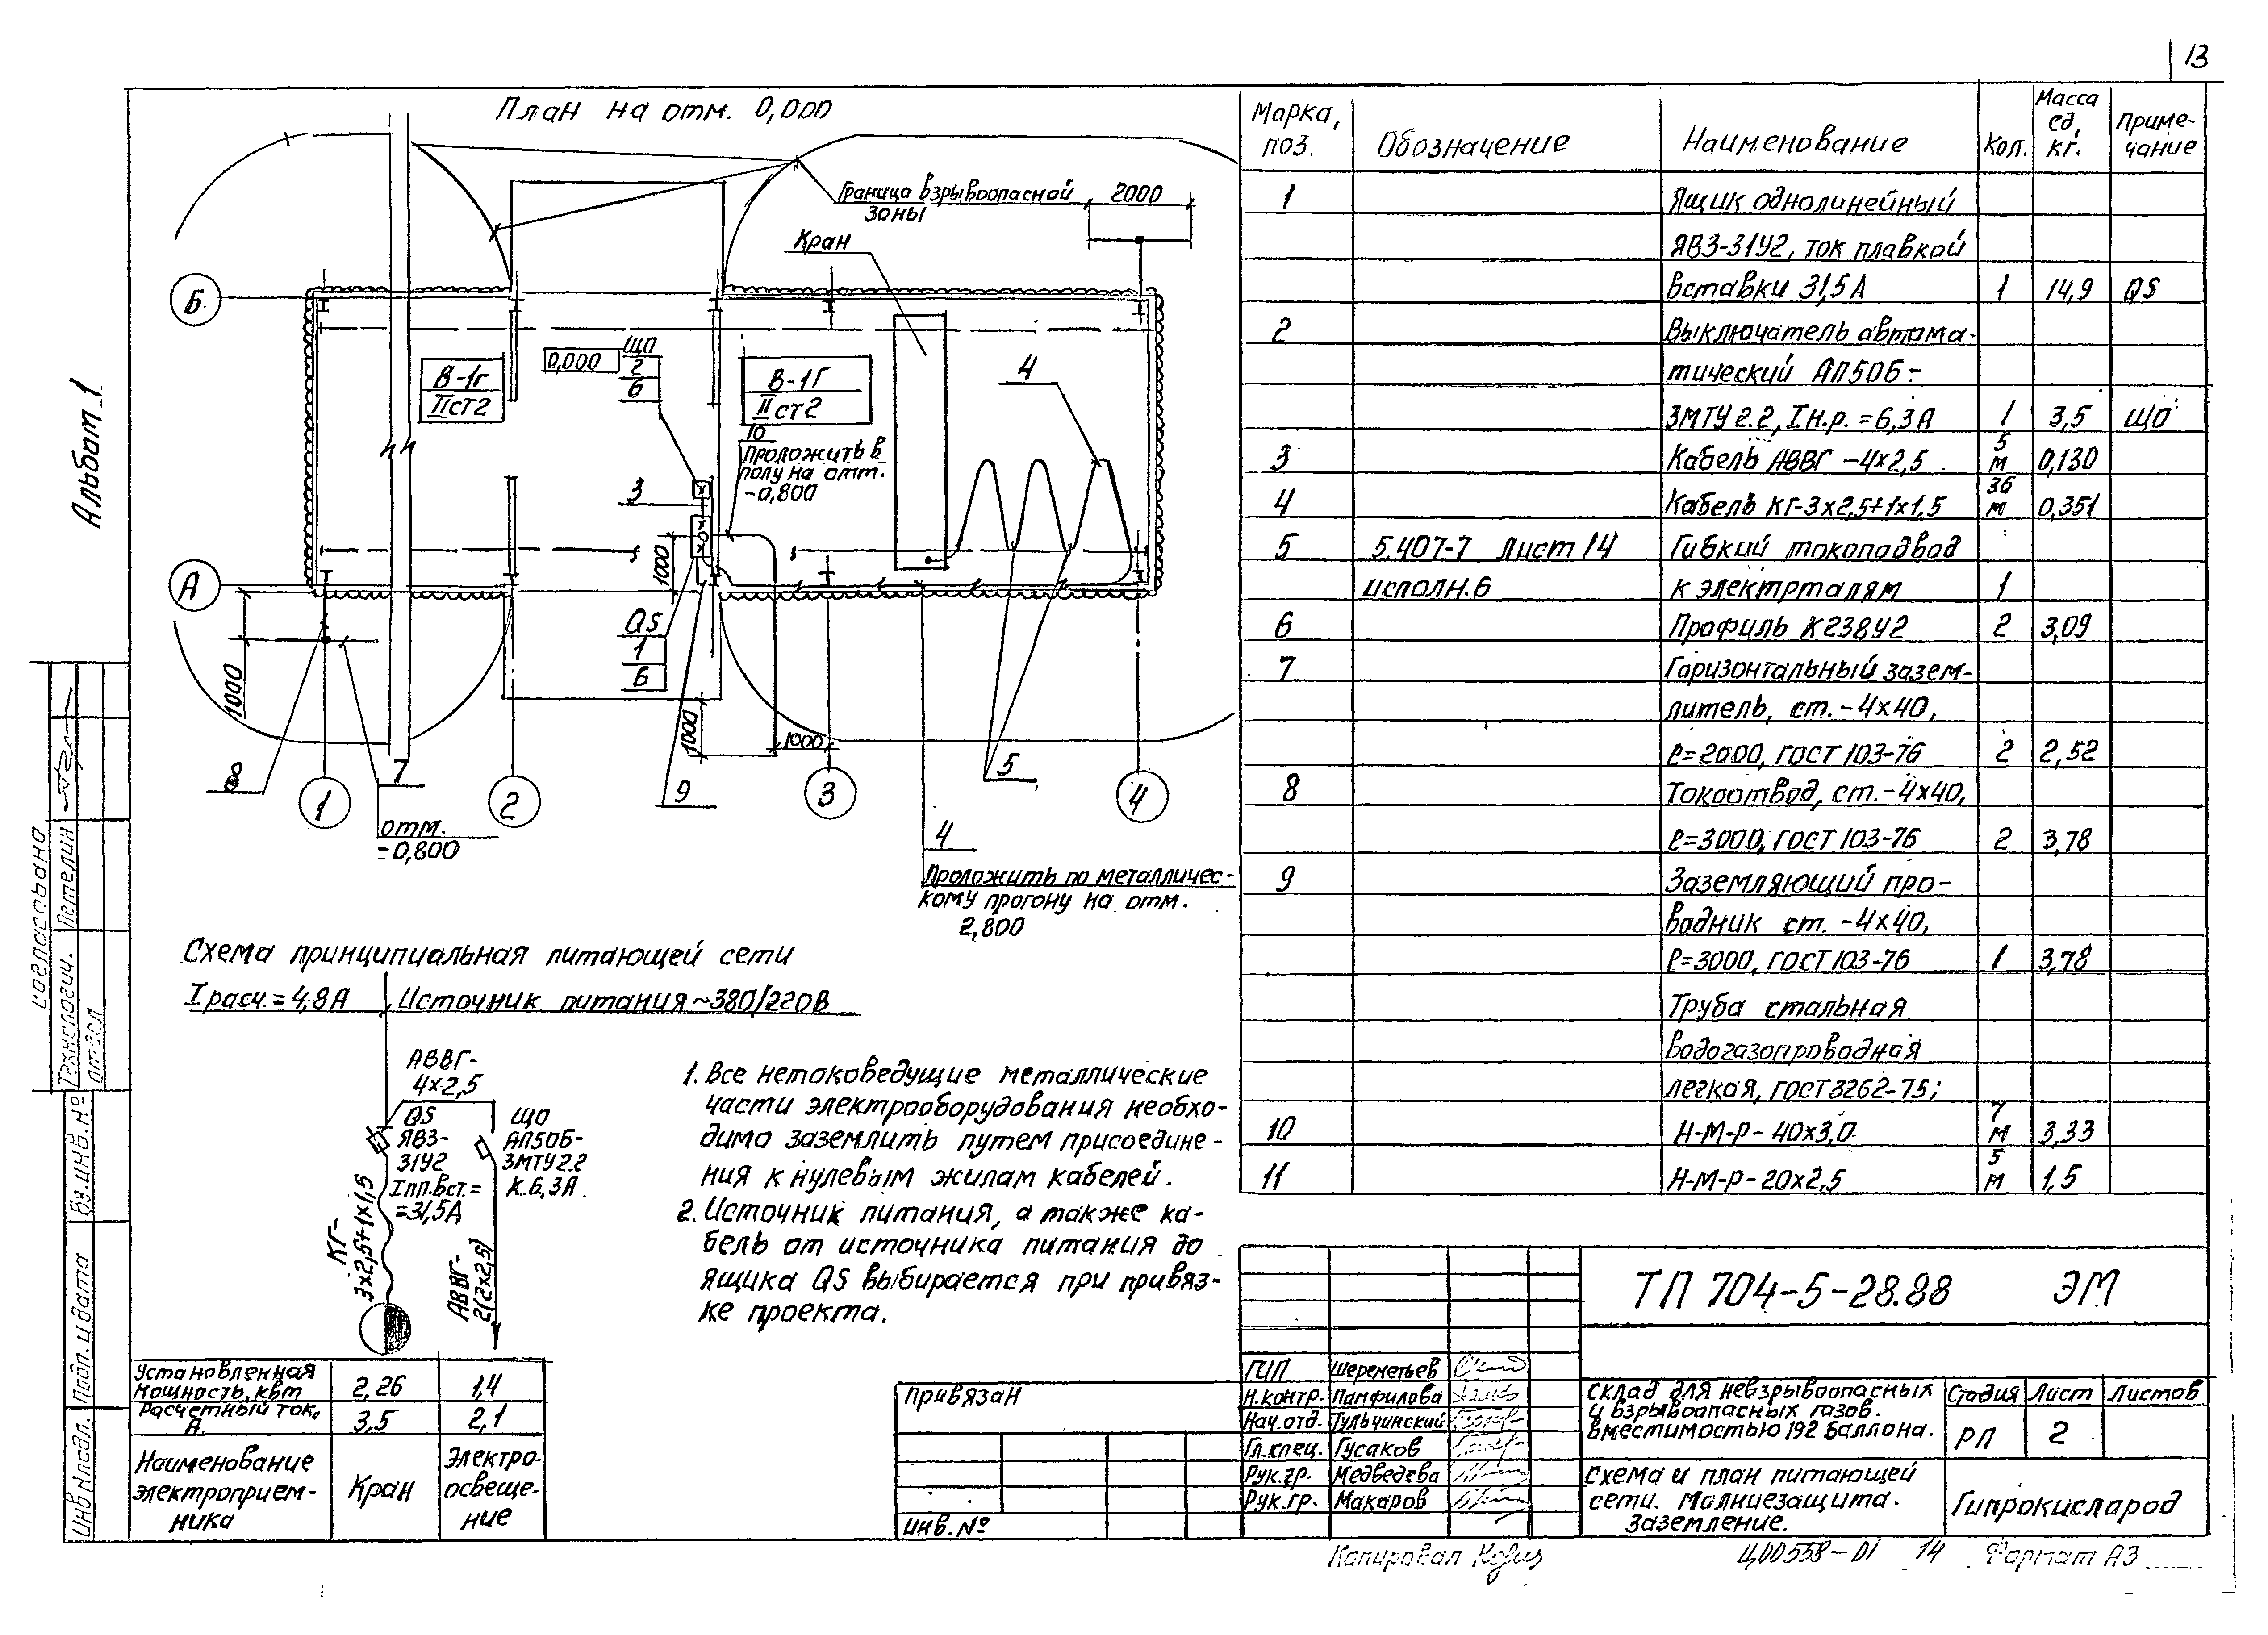 13
План на отм. 0,000
Граница взрывоопасной
зоны
2000
Кран
Б
0,000
ЩО
2
6
В-1г
IIст2
В-1Г
IIст2
4
10
Проложить в
полу на отм.
-0,800
3
1000
А
QS
1
6
1000
1000
1000
8
7
9
5
1
2
3
4
отм.
-0,800
4
Проложить по металличес-
кому прогону на отм.
2,800
Альбом 1
Схема принципиальная питающей сети
Iрасч.=4,8А
Источник питания ~380/220В
АВВГ-
4×2,5
QS
ЯВ3-
31У2
Iпл.вст.=
=31,5А
ЩО
АП50Б-
3МТУ2.2
К.6,3А
КГ-
3×2,5+1×1,5
АВВГ-
2(2×2,5)
1. Все нетоковедущие металлические
части электрооборудования необхо-
димо заземлить путем присоедине-
ния к нулевым жилам кабелей.
2. Источник питания, а также ка-
бель от источника питания до
ящика QS выбирается при привяз-
ке проекта.
Установленная
мощность, квт 2,26 1,4
Расчетный ток,
А. 3,5 2,1
Наименование
электроприем-
ника
Кран
Электро-
освеще-
ние
Марка,
поз. Обозначение Наименование Кол. Масса
ед,
кг. Приме-
чание
1 Ящик однолинейный
ЯВ3-31У2, ток плавкой
вставки 31,5А 1 14,9 QS
2 Выключатель автома-
тический АП50Б-
3МТУ2.2, Iн.р.=6,3А 1 3,5 ЩО
3 Кабель АВВГ-4×2,5 5 м 0,130
4 Кабель КГ-3×2,5+1×1,5 36 м 0,351
5 5.407-7 Лист 14 Гибкий токоподвод
исполн.6 к электроталям 1
6 Профиль К238У2 2 3,09
7 Горизонтальный зазем-
литель, ст.-4×40,
ℓ=2000, ГОСТ 103-76 2 2,52
8 Токоотвод, ст.-4×40,
ℓ=3000, ГОСТ 103-76 2 3,78
9 Заземляющий про-
водник ст.-4×40,
ℓ=3000, ГОСТ 103-76 1 3,78
Труба стальная
водогазопроводная
легкая, ГОСТ 3262-75;
10 Н-М-Р-40×3,0 7 м 3,33
11 Н-М-Р-20×2,5 5 м 1,5
ТП 704-5-28.88 ЭМ
ГИП Шереметьев
Н.контр. Панфилова
Нач.отд. Тульчинский
Гл.спец. Гусаков
Рук.гр. Медведева
Рук.гр. Макаров
Склад для невзрывоопасных
и взрывоопасных газов.
вместимостью 192 баллона.
Стадия Лист Листов
РП 2
Схема и план питающей
сети. Молниезащита.
Заземление.
Гипрокислород
Привязан
Инв.№
Согласовано
Технологич. Петелин
отдел
Вз.инв.№
Подп. и дата
Инв.№подл.
Копировал
Ц00558-01 14 Формат А3